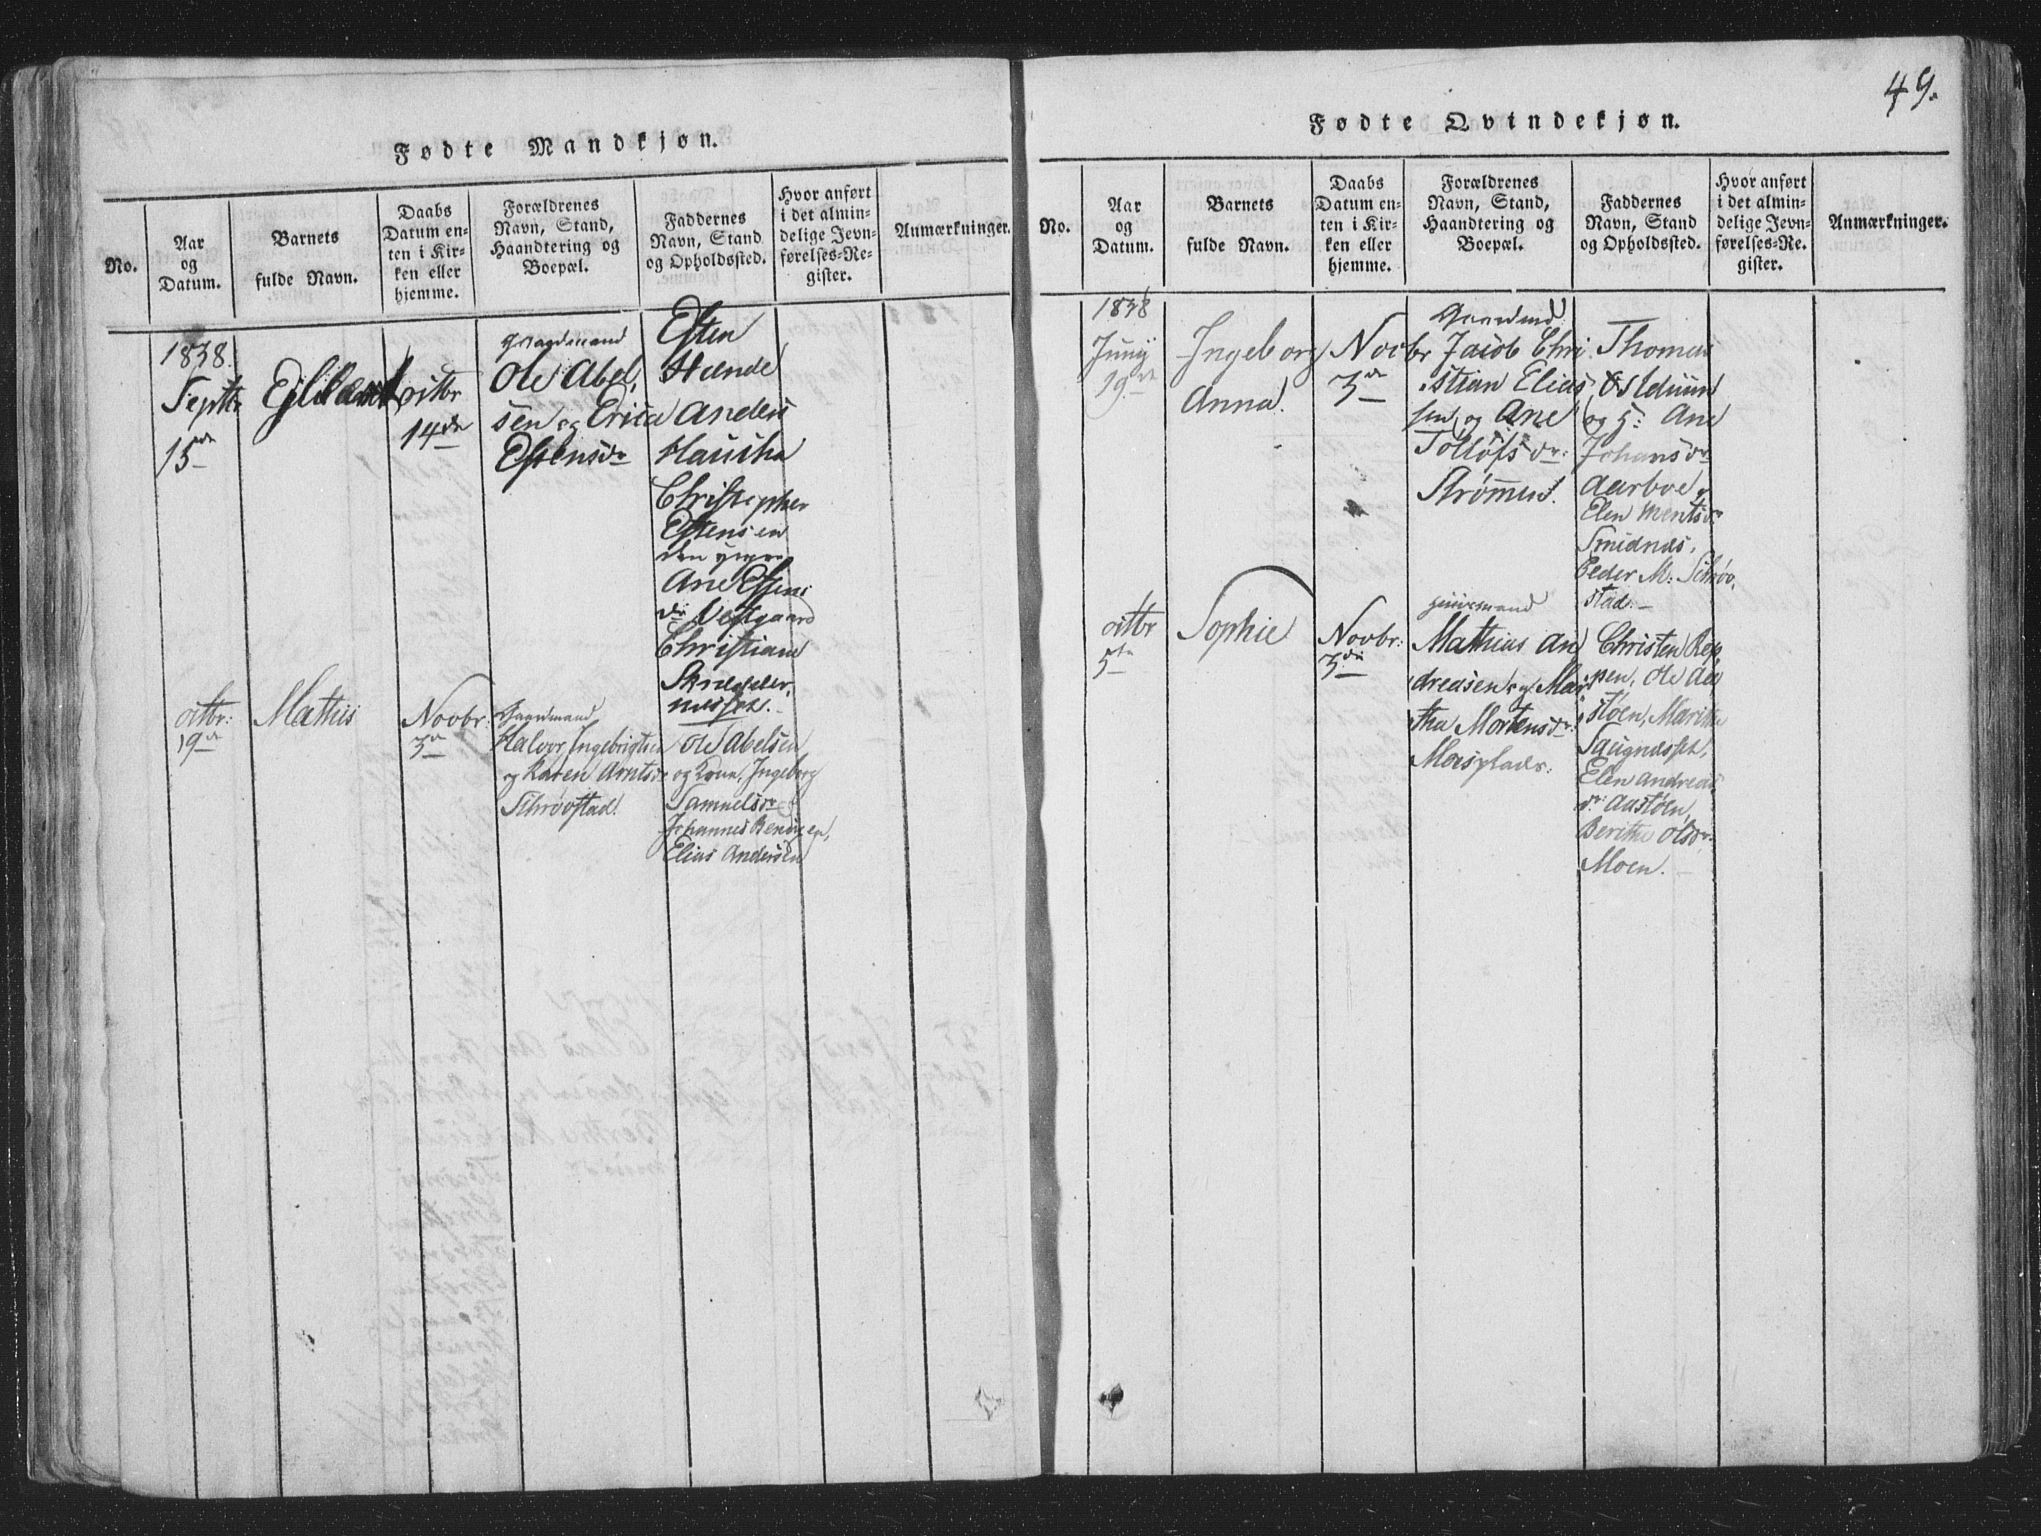 Fødte Mandkjøn.
No.
Aar
og
Datum.
Barnets
fulde Navn.
Daabs
Datum en-
ten i Kir-
ken eller
hjemme.
Forældrenes
Navn, Stand,
Haandtering og
Boepæl.
Faddernes
Navn, Stand
og Opholdssted.
Hvor anført
i det almin-
delige Jevn-
førelses-Re-
gister.
Anmærkninger.
1838.
Septbr
15de
octbr
14de
Gaardmand
Ole Abel,
sen og Erica
Estensdr
Esten
Hænde
Anders
Christopher
Estensen
den yngre
Ane Estens
dr Vestgaard
Christiane
octbr:
19de
Mathis
Novbr:
3de
Gaardmand
Halvor Ingebrigtsen
og Karen Arntsdr
Schrøvstad.
Ole Abelsen
og Kone, Ingeborg
Samuelsdr
Johannes
Elias Andersen
Fødte Qvindekjøn.
49.
No.
Aar
og
Datum.
Barnets
fulde Navn.
Daabs
Datum en-
ten i Kir-
ken eller
hjemme.
Forældrenes
Navn, Stand,
Haandtering og
Boepæl.
Faddernes
Navn, Stand
og Opholdssted.
Hvor anført
i det almin-
delige Jevn-
førelses-Re-
gister.
Anmærkninger.
1838
Junij
19de
Ingeborg
Anna.
Novbr
3de
Gaardmd
Jacob Chri
stian Elias
sen, og Ane
Tollofsdr:
Strømmes.
Thomas
Ostduun
og H: Ane
Johansdr
Aarboe,
Elen Mentsdr
Smidnæs,
Peder M: Schrøv,
stad.
octbr
5te
Sophie
Novbr:
3de
Huusmand
Mathias An
dreasen og Mar
tha Mortensdr:
Moisplads.
Christen Rep
pen, Ole Aa
støen, Maritha
Saugnæsset,
Elen Andreas
dr: Aastøen,
Beritha Olsdr
Moen.